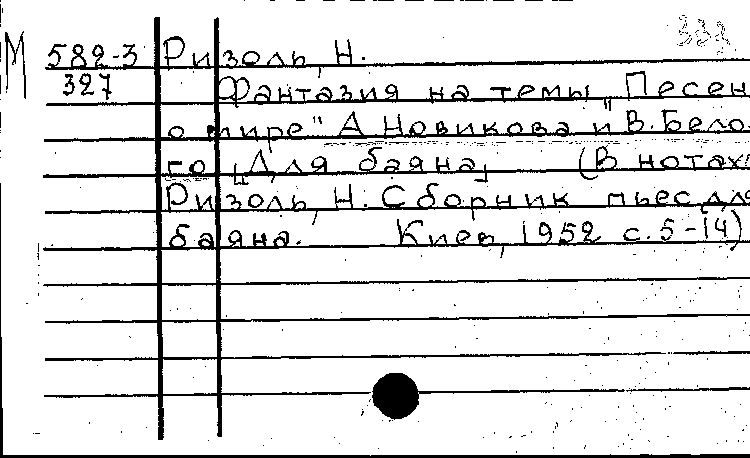 333
М 582-3 Ризоль, Н.
327 Фантазия на темы „Песен
о мире" А. Новикова и В. Бело-
го [Для баяна] (В нотах:
Ризоль, Н. Сборник пьес для
баяна. Киев, 1952 с. 5-14)